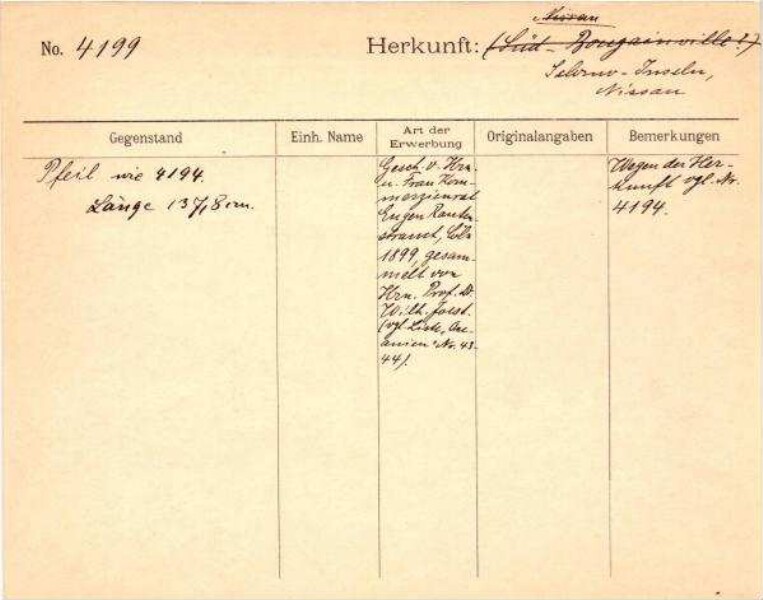 Nissan
No. 4199 Herkunft: (Süd-Bougainville?)
Salomo-Inseln,
Nissan
Gegenstand
Einh. Name
Art der
Erwerbung
Originalangaben
Bemerkungen
Pfeil wie 4194.
Länge 137,8 cm.
Gesch. v. Hrn.
u. Frau Kom-
merzienrat
Eugen Rauten-
strauch, Cöln
1899, gesam-
melt von
Hrn. Prof. Dr.
Wilh. Joest.
(vgl. Liste, Oce-
anien" Nr. 43-
44).
Wegen der Her-
kunft vgl. Nr.
4194.